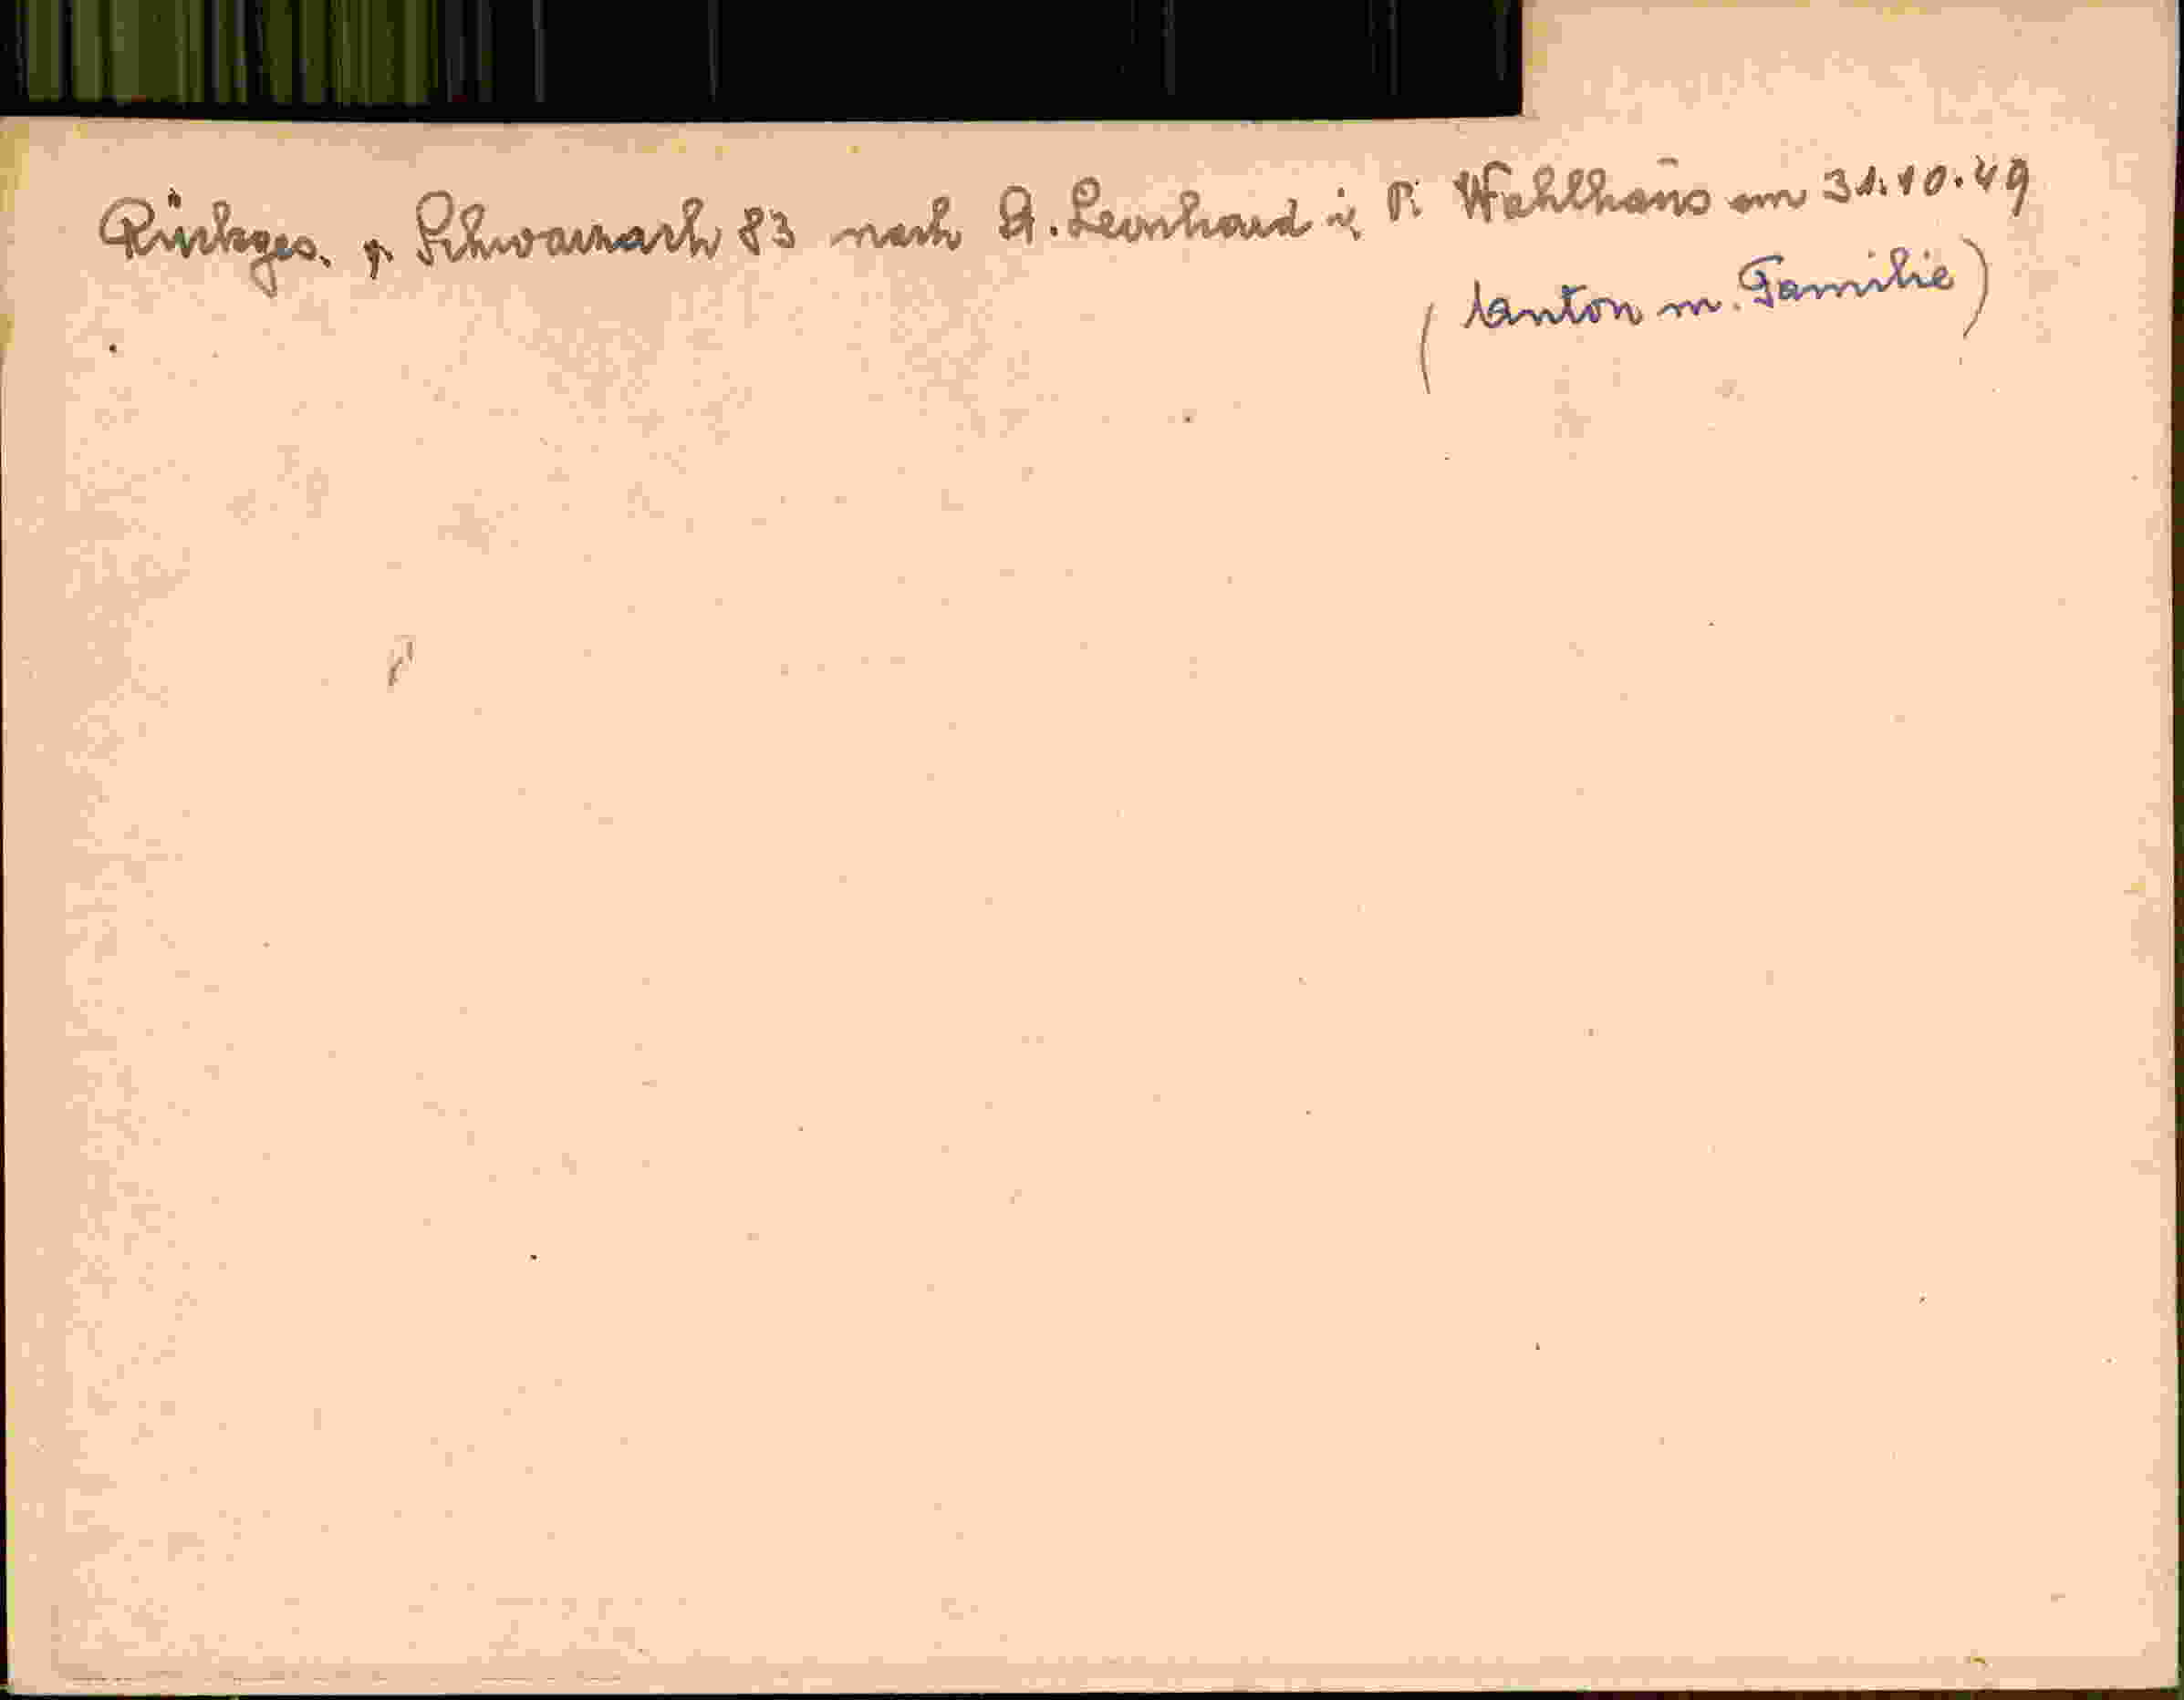 Rückges. v. Schwainach 83 nach St. Leonhard i. P. Wahlhaus am 31.10.49
(Anton m. Familie)